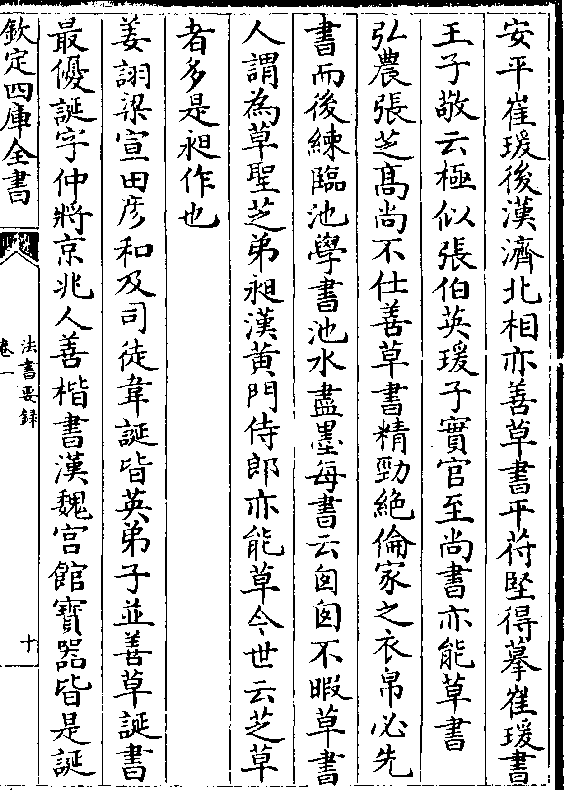 安平崔瑗後漢濟北相亦善草書平苻堅得摹崔瑗書
王子敬云極似張伯英瑗子實官至尚書亦能草書
弘農張芝髙尚不仕善草書精勁絶倫家之衣帛必先
書而後練臨池學書池水盡墨每書云匆匆不暇草書
人謂為草聖芝弟昶漢黄門侍郎亦能草今世云芝草
者多是昶作也
姜詡梁宣田彦和及司徒韋誕皆英弟子並善草誕書
最優誕字仲將京兆人善楷書漢魏宫館寶器皆是誕
欽定四庫全書
法書要録
卷一
十